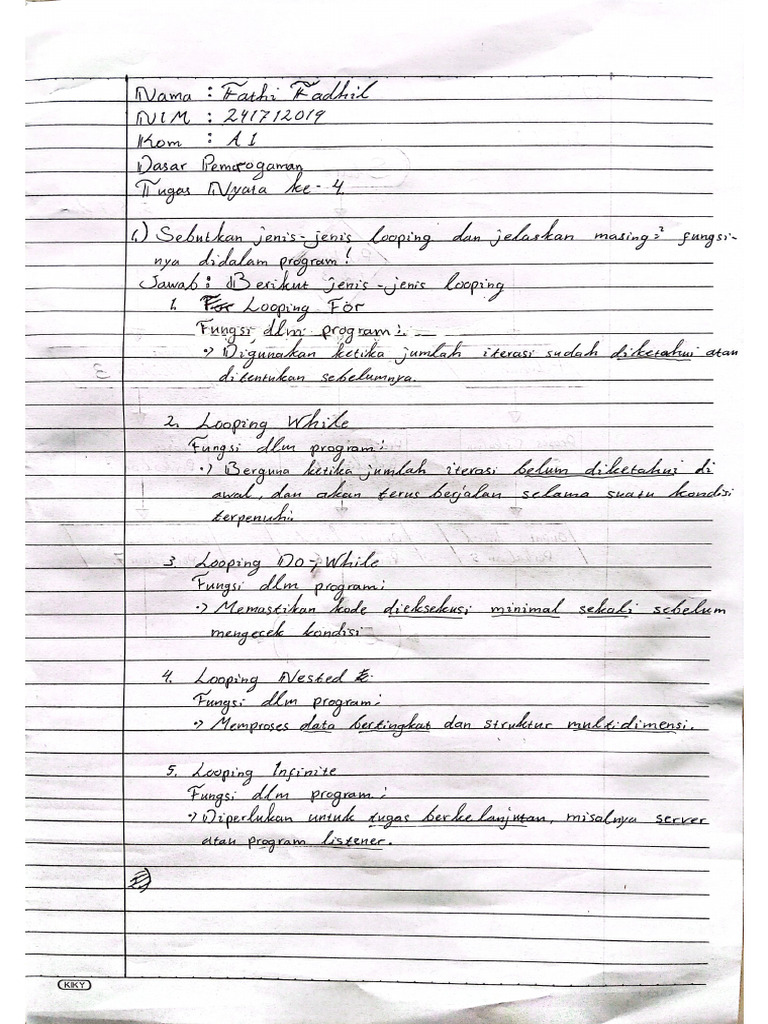 Nama : Fathi Fadhil
NIM : 241712019
Kom : A1
Dasar Pemrogaman
Tugas Nyata ke-4
1.) Sebutkan jenis-jenis looping dan jelaskan masing² fungsi-
nya didalam program!
Jawab : Berikut jenis-jenis looping
1. Looping For
Fungsi dlm program:
•) Digunakan ketika jumlah iterasi sudah diketahui atau
ditentukan sebelumnya.
2. Looping While
Fungsi dlm program:
•) Berguna ketika jumlah iterasi belum diketahui di
awal, dan akan terus berjalan selama suatu kondisi
terpenuhi.
3. Looping Do-While
Fungsi dlm program:
•) Memastikan kode dieksekusi minimal sekali sebelum
mengecek kondisi
4. Looping Nested
Fungsi dlm program:
•) Memproses data bertingkat dan struktur multidimensi.
5. Looping Infinite
Fungsi dlm program:
•) Diperlukan untuk tugas berkelanjutan, misalnya server
atau program listener.
KIKY